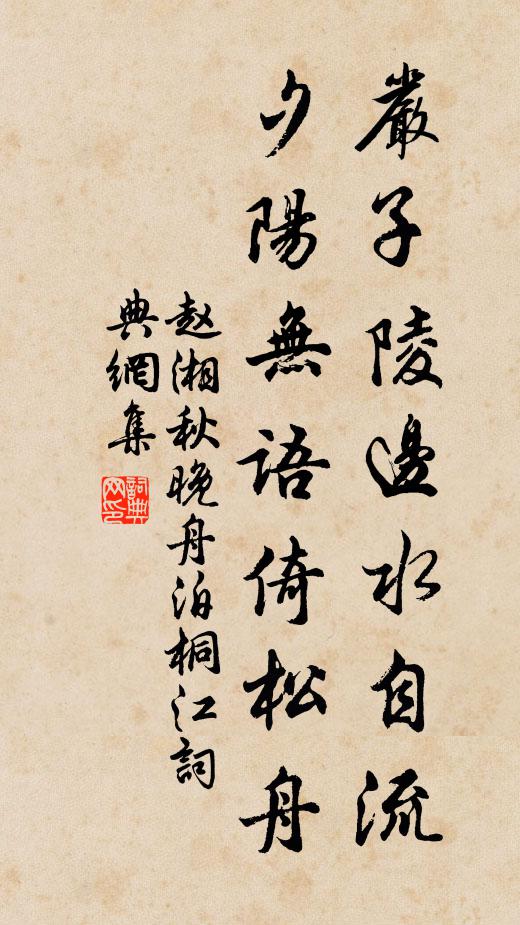 嚴子陵邊水自流
夕陽無語倚松舟
赵湘秋晚舟泊桐江詞
典網集
詞典网印